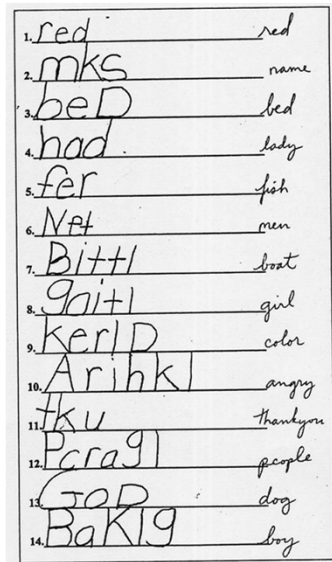 1. red red
2. mks name
3. beD bed
4. had lady
5. fer fish
6. Net men
7. Bittl boat
8. goitl girl
9. kerlD color
10. Arihkl angry
11. tku thankyou
12. Pcragl people
13. GoD dog
14. BaKlg boy